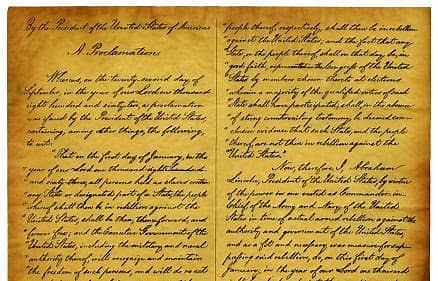 By the President of the United States of America
A Proclamation.
Whereas, on the twenty-second day of
September, in the year of our Lord one thousand
eight hundred and sixty-two, a proclamation
was issued by the President of the United States,
containing, among other things, the following,
to wit:
"That on the first day of January, in the
"year of our Lord one thousand eight hundred
"and sixty-three, all persons held as slaves within
"any State or designated part of a State, the people
"whereof shall then be in rebellion against the
"United States, shall be then, thenceforward, and
"forever free; and the Executive Government of the
"United States, including the military and naval
"authority thereof, will recognize and maintain
"the freedom of such persons, and will do no act
people thereof, respectively, shall then be in rebellion
against the United States; and the fact that any
State, or the people thereof, shall on that day be, in
good faith, represented in the Congress of the United
States by members chosen thereto at elections
wherein a majority of the qualified voters of such
State shall have participated, shall, in the absence
of strong countervailing testimony, be deemed con-
clusive evidence that such State, and the people
thereof, are not then in rebellion against the
United States.
Now, therefore I, Abraham
Lincoln, President of the United States, by virtue
of the power in me vested as Commander-in-
Chief, of the Army and Navy of the United
States in time of actual armed rebellion against the
authority and government of the United States,
and as a fit and necessary war measure for sup-
pressing said rebellion, do, on this first day of
January, in the year of our Lord one thousand